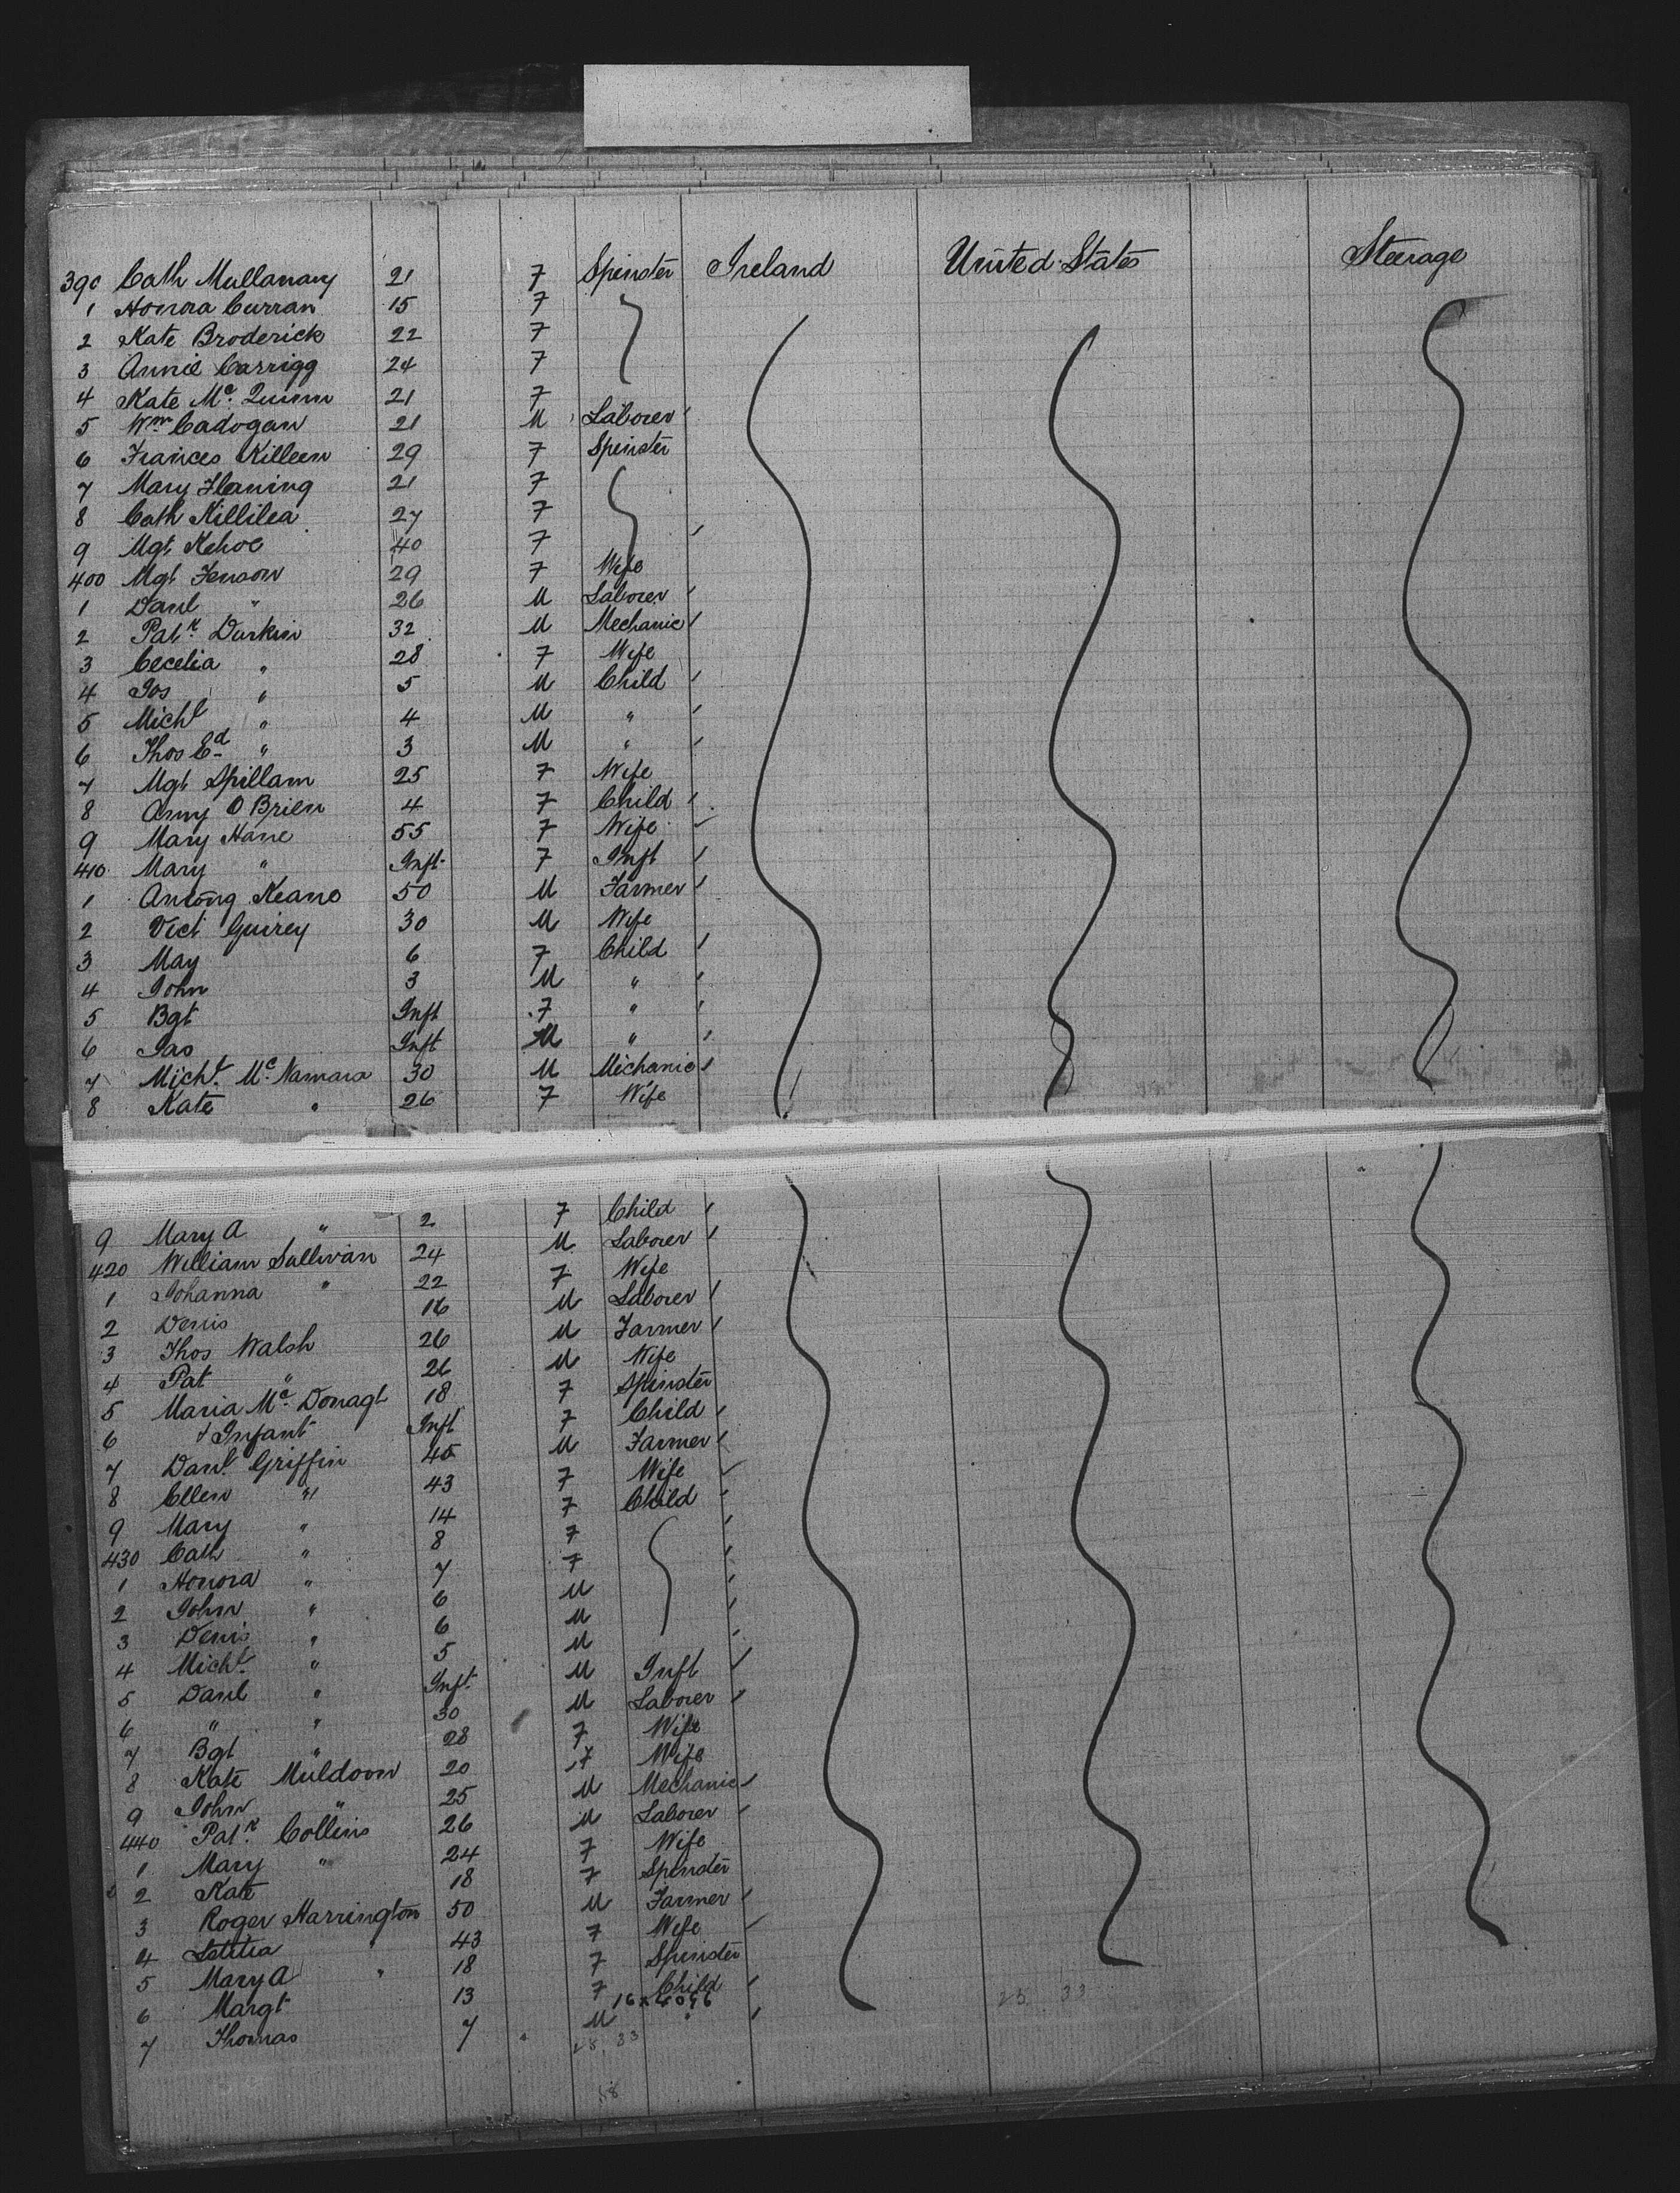 390 Cath Mullanary 21 F Spinster Ireland United States Steerage
1 Honora Curran 15 F
2 Kate Broderick 22 F
3 Annie Carrigg 24 F
4 Kate Mc. Quinn 21 F
5 Wm Cadogan 21 M Laborer
6 Frances Killeen 29 F Spinster
7 Mary Flaning 21 F
8 Cath Killilea 27 F
9 Mgt Kehoe 40 F
400 Mgt Fenson 29 F Wife
1 Danl " 26 M Laborer
2 Patk. Durkin 32 M Mechanic
3 Cecelia " 28 F Wife
4 Jos " 5 M Child
5 Michl " 4 M "
6 Thos Ed " 3 M "
7 Mgt Spillam 25 F Wife
8 Amy O Brien 4 F Child
9 Mary Hane 55 F Wife
410 Mary " Inft F Inft
1 Antony Keane 50 M Farmer
2 Vict Guirey 30 M Wife
3 May 6 F Child
4 John 3 M "
5 Bgt Inft F "
6 Jas Inft M "
7 Michl. Mc. Namara 30 M Michanic
8 Kate " 26 F Wife
9 Mary A " 2 F Child
420 William Sullivan 24 M Laborer
1 Johanna " 22 F Wife
2 Denis 16 M Laborer
3 Thos Walsh 26 M Farmer
4 Pat " 26 M Wife
5 Maria Mc. Donagh 18 F Spinster
6 & Infant Inft F Child
7 Danl. Griffin 45 M Farmer
8 Ellen " 43 F Wife
9 Mary " 14 F Child
430 Cath " 8 F
1 Honora " 7 F
2 John " 6 M
3 Denis " 6 M
4 Michl. " 5 M
5 Danl " Inft. M Inft
6 " " 30 M Laborer
7 Bgt " 28 F Wife
8 Kate Muldoon 20 F Wife
9 John " 25 M Mechanic
440 Patk. Collins 26 M Laborer
1 Mary " 24 F Wife
2 Kate 18 F Spinster
3 Roger Harrington 50 M Farmer
4 Letitia " 43 F Wife
5 Mary A " 18 F Spinster
6 Margt 13 F Child
16x4096
7 Thomas 7 M "